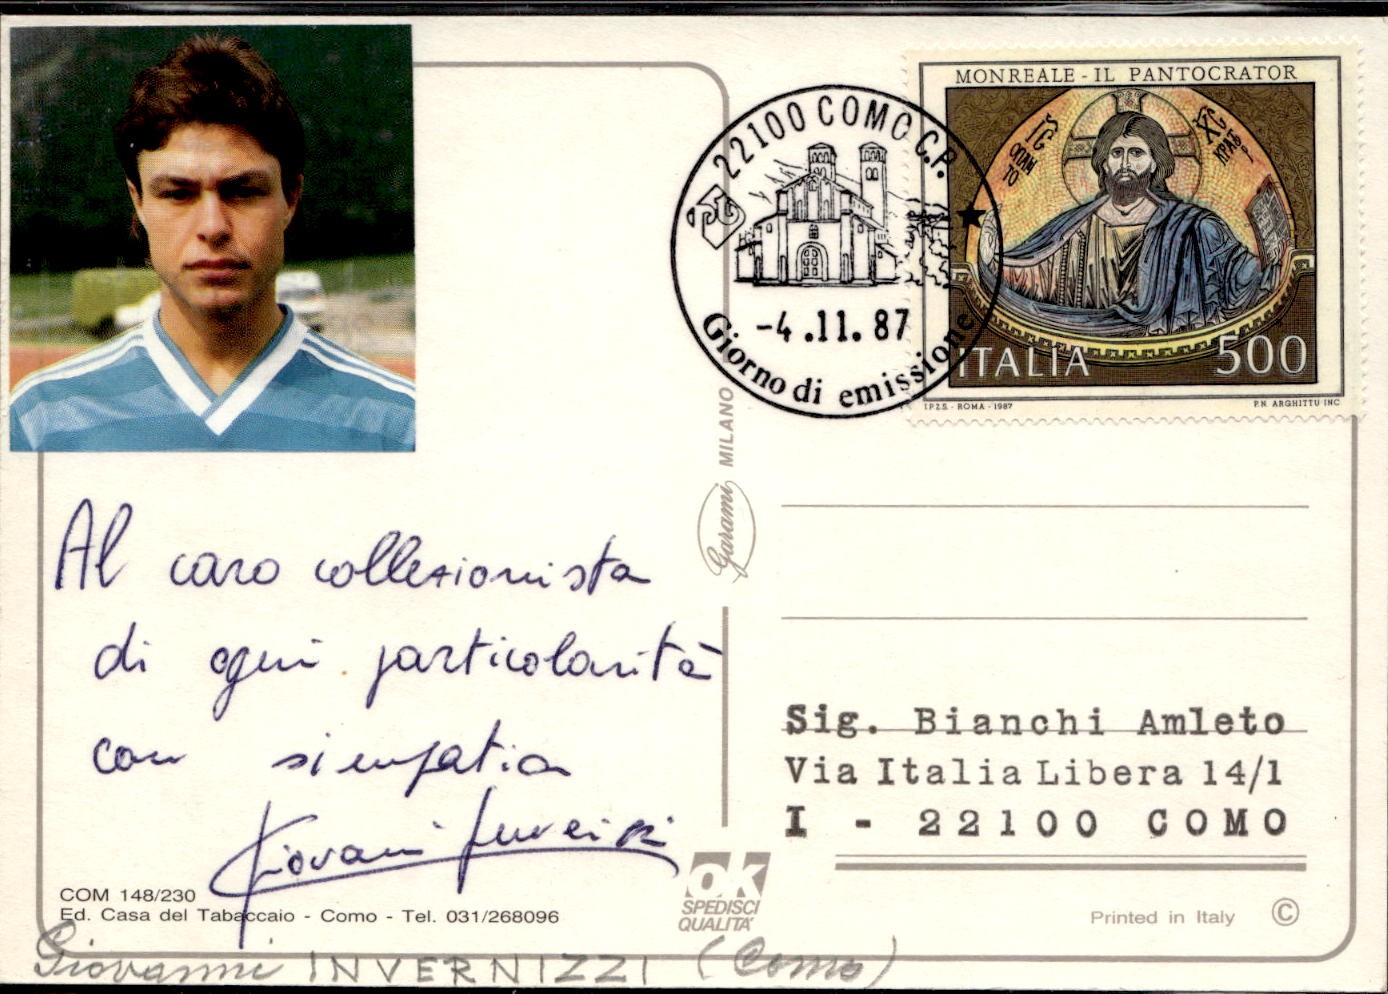 22100 COMO C.P.
-4.11.87
Giorno di emissione
MONREALE - IL PANTOCRATOR
ITALIA 500
I.P.Z.S. - ROMA - 1987
P.N. ARGHITTU INC
Garami MILANO
Al caro collezionista
di ogni particolarità
con simpatia
Giovanni Invernizzi
Sig. Bianchi Amleto
Via Italia Libera 14/1
I - 22100 COMO
COM 148/230
Ed. Casa del Tabaccaio - Como - Tel. 031/268096
OK
SPEDISCI
QUALITA'
Printed in Italy ©
Giovanni INVERNIZZI (Como)